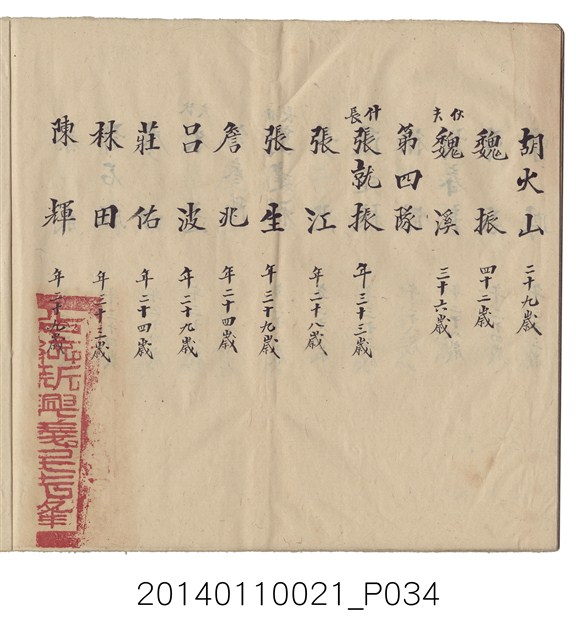 胡火山 二十九歲
魏振 四十二歲
伙夫 魏溪 三十六歲
第四隊
什長 張就振 年三十三歲
張江 年二十八歲
張生 年三十九歲
詹兆 年二十四歲
呂波 年二十九歲
莊佑 年二十四歲
林田 年三十三歲
陳輝 年二十九歲
20140110021_P034